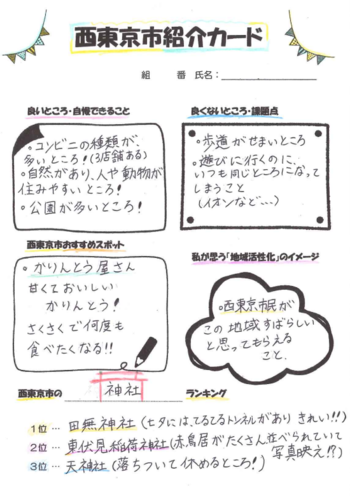 西東京市紹介カード
組 番 氏名:
良いところ・自慢できること
・コンビニの種類が、
多いところ!(3店舗ある)
・自然があり、人や動物が
住みやすいところ!
・公園が多いところ!
良くないところ・課題点
・歩道がせまいところ
・遊びに行くのに、
いつも同じところになって
しまうこと
(イオンなど…)
西東京市おすすめスポット
・かりんとう屋さん
甘くておいしい
かりんとう!
さくさくで何度も
食べたくなる!!
私が思う「地域活性化」のイメージ
・西東京市民が
この地域すばらしい
と思ってもらえる
こと。
西東京市の 神社 ランキング
1位 … 田無神社(七夕には、てるてるトンネルがあり きれい!!)
2位 … 東伏見稲荷神社(赤鳥居がたくさん並べられていて
写真映え!?)
3位 … 天神社(落ちついて休めるところ!)